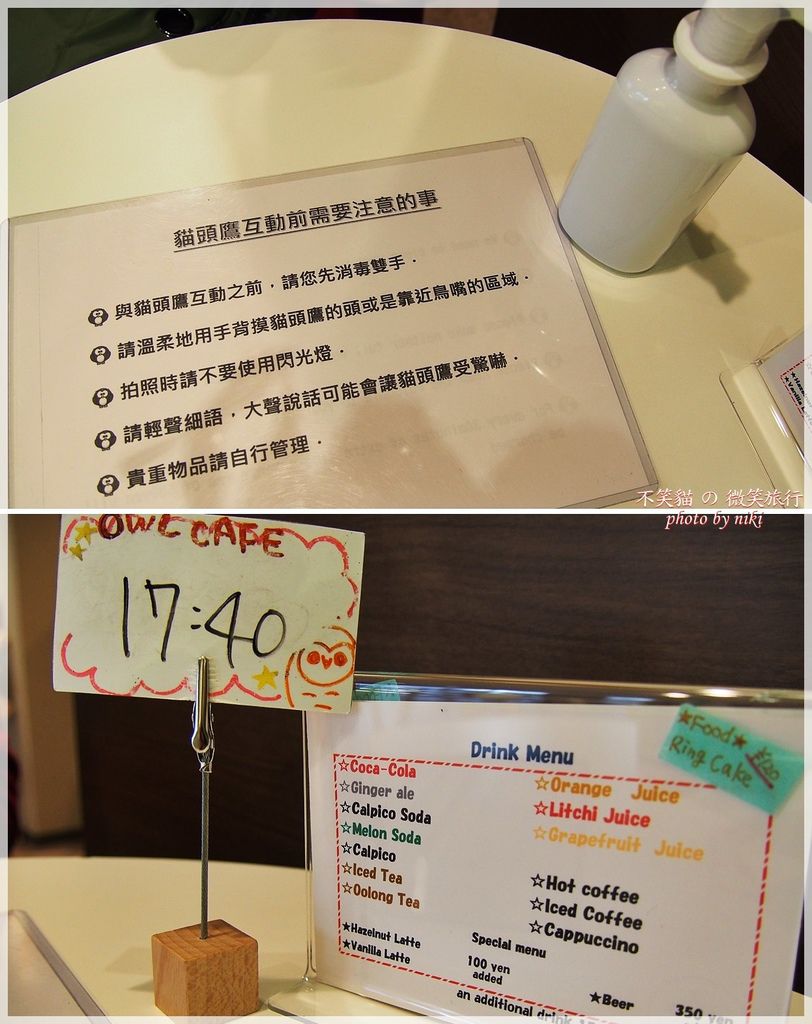 貓頭鷹互動前需要注意的事
與貓頭鷹互動之前，請您先消毒雙手．
請溫柔地用手背摸貓頭鷹的頭或是靠近鳥嘴的區域．
拍照時請不要使用閃光燈．
請輕聲細語，大聲說話可能會讓貓頭鷹受驚嚇．
貴重物品請自行管理．
★Vanilla
不笑貓 の 微笑旅行
photo by niki
OWL CAFE
17:40
Drink Menu
★Food★
Ring Cake
☆Coca-Cola
☆Ginger ale
☆Calpico Soda
☆Melon Soda
☆Calpico
☆Iced Tea
☆Oolong Tea
☆Orange Juice
☆Litchi Juice
☆Grapefruit Juice
☆Hot coffee
☆Iced Coffee
☆Cappuccino
★Hazelnut Latte
★Vanilla Latte
Special menu
100 yen
added
★Beer 350 yen
an additional drink